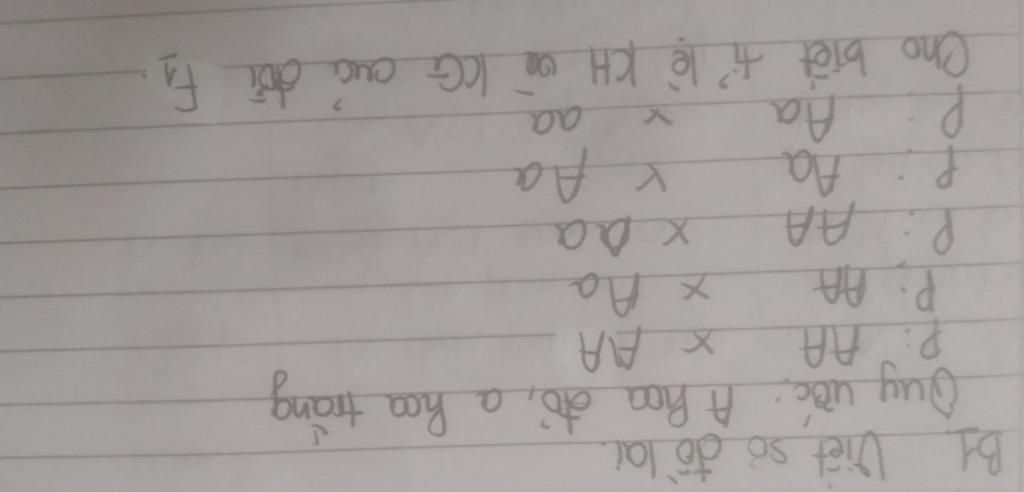 B1 Viết sơ đồ lai.
Quy ước: A hoa đỏ, a hoa trắng
P: AA x AA
P: AA x Aa
P: AA x aa
P: Aa x Aa
P: Aa x aa
Cho biết tỉ lệ KH và KG của đời F1